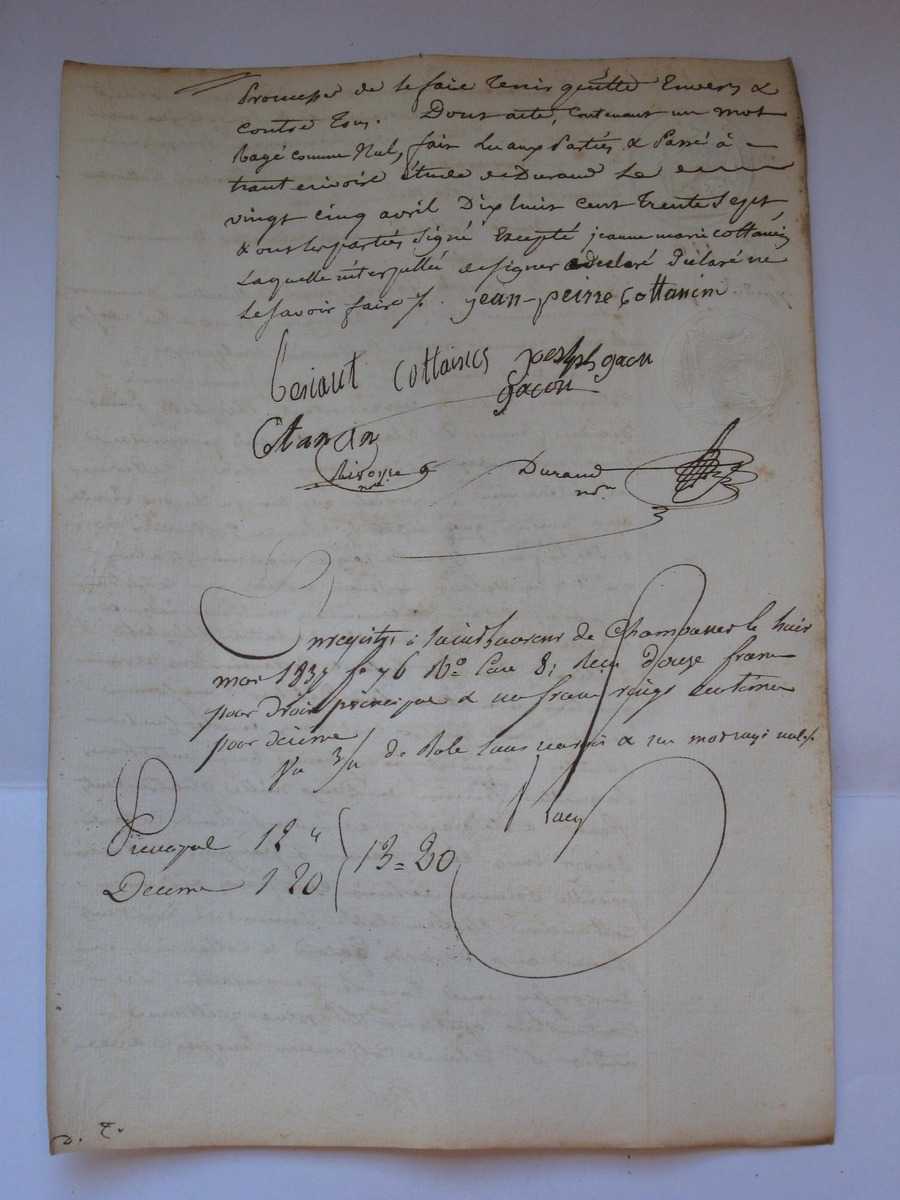 Promesse de le faire tenir quitte Envers &
contre tous. Dont acte, contenant un mot
Rayé comme Nul, fait Lu aux Parties & Passé à
étude de Durand Le
vingt cinq avril Dix huit cent Trente Sept
& ont les parties Signé Excepté jeanne marie cottancin
Laquelle interpellée de signer a déclaré Déclaré ne
Le savoir faire /. jean-peirre Cottancin
Cottancies joseph gacon
gacon
Cotancin
Durand
nre
Enregistré à saint hauveur de Champanes le huit
mai 1837 fo 76 No Case 8; Reçu douze francs
pour Droit principal & un franc vingt centimes
pour décime
Vu 3/. de Role sans renvois & un mot rayé nul /.
Principal 12 "
13 = 20
Decime 1 20
D. T.